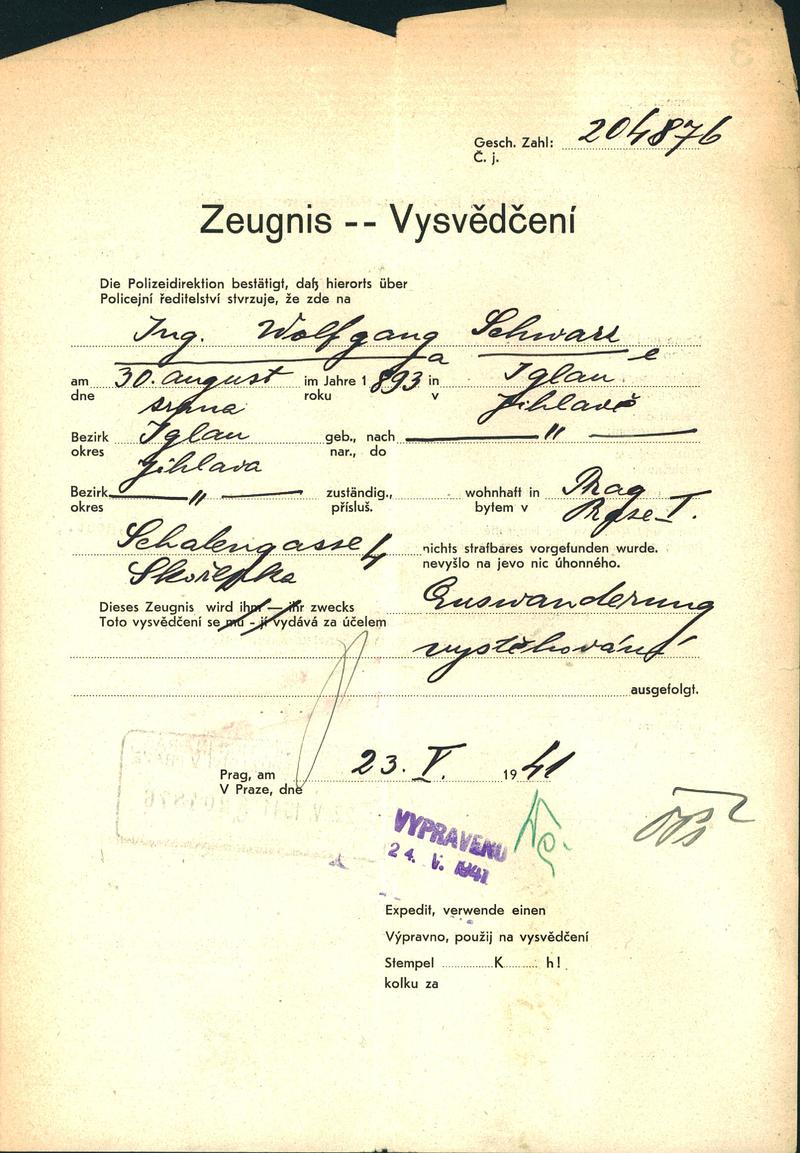 Gesch. Zahl: 204876
Č. j.
Zeugnis -- Vysvědčení
Die Polizeidirektion bestätigt, daß hierorts über
Policejní ředitelství stvrzuje, že zde na
Ing. Wolfganga Schwarze
am 30. august im Jahre 1893 in Iglau
dne srpna roku v Jihlavě
Bezirk Iglau geb., nach — " —
okres Jihlava nar., do
Bezirk — " — zuständig., wohnhaft in Prag
okres přísluš. bytem v Praze I.
Schalengasse 4 nichts strafbares vorgefunden wurde.
Skořepka nevyšlo na jevo nic úhonného.
Dieses Zeugnis wird ihm — ihr zwecks Auswanderung
Toto vysvědčení se mu - jí vydává za účelem
vystěhování
ausgefolgt.
Prag, am 23. V. 1941
V Praze, dne
VYPRAVENO
24. V. 1941
Expedit, verwende einen
Výpravno, použij na vysvědčení
Stempel K h!
kolku za